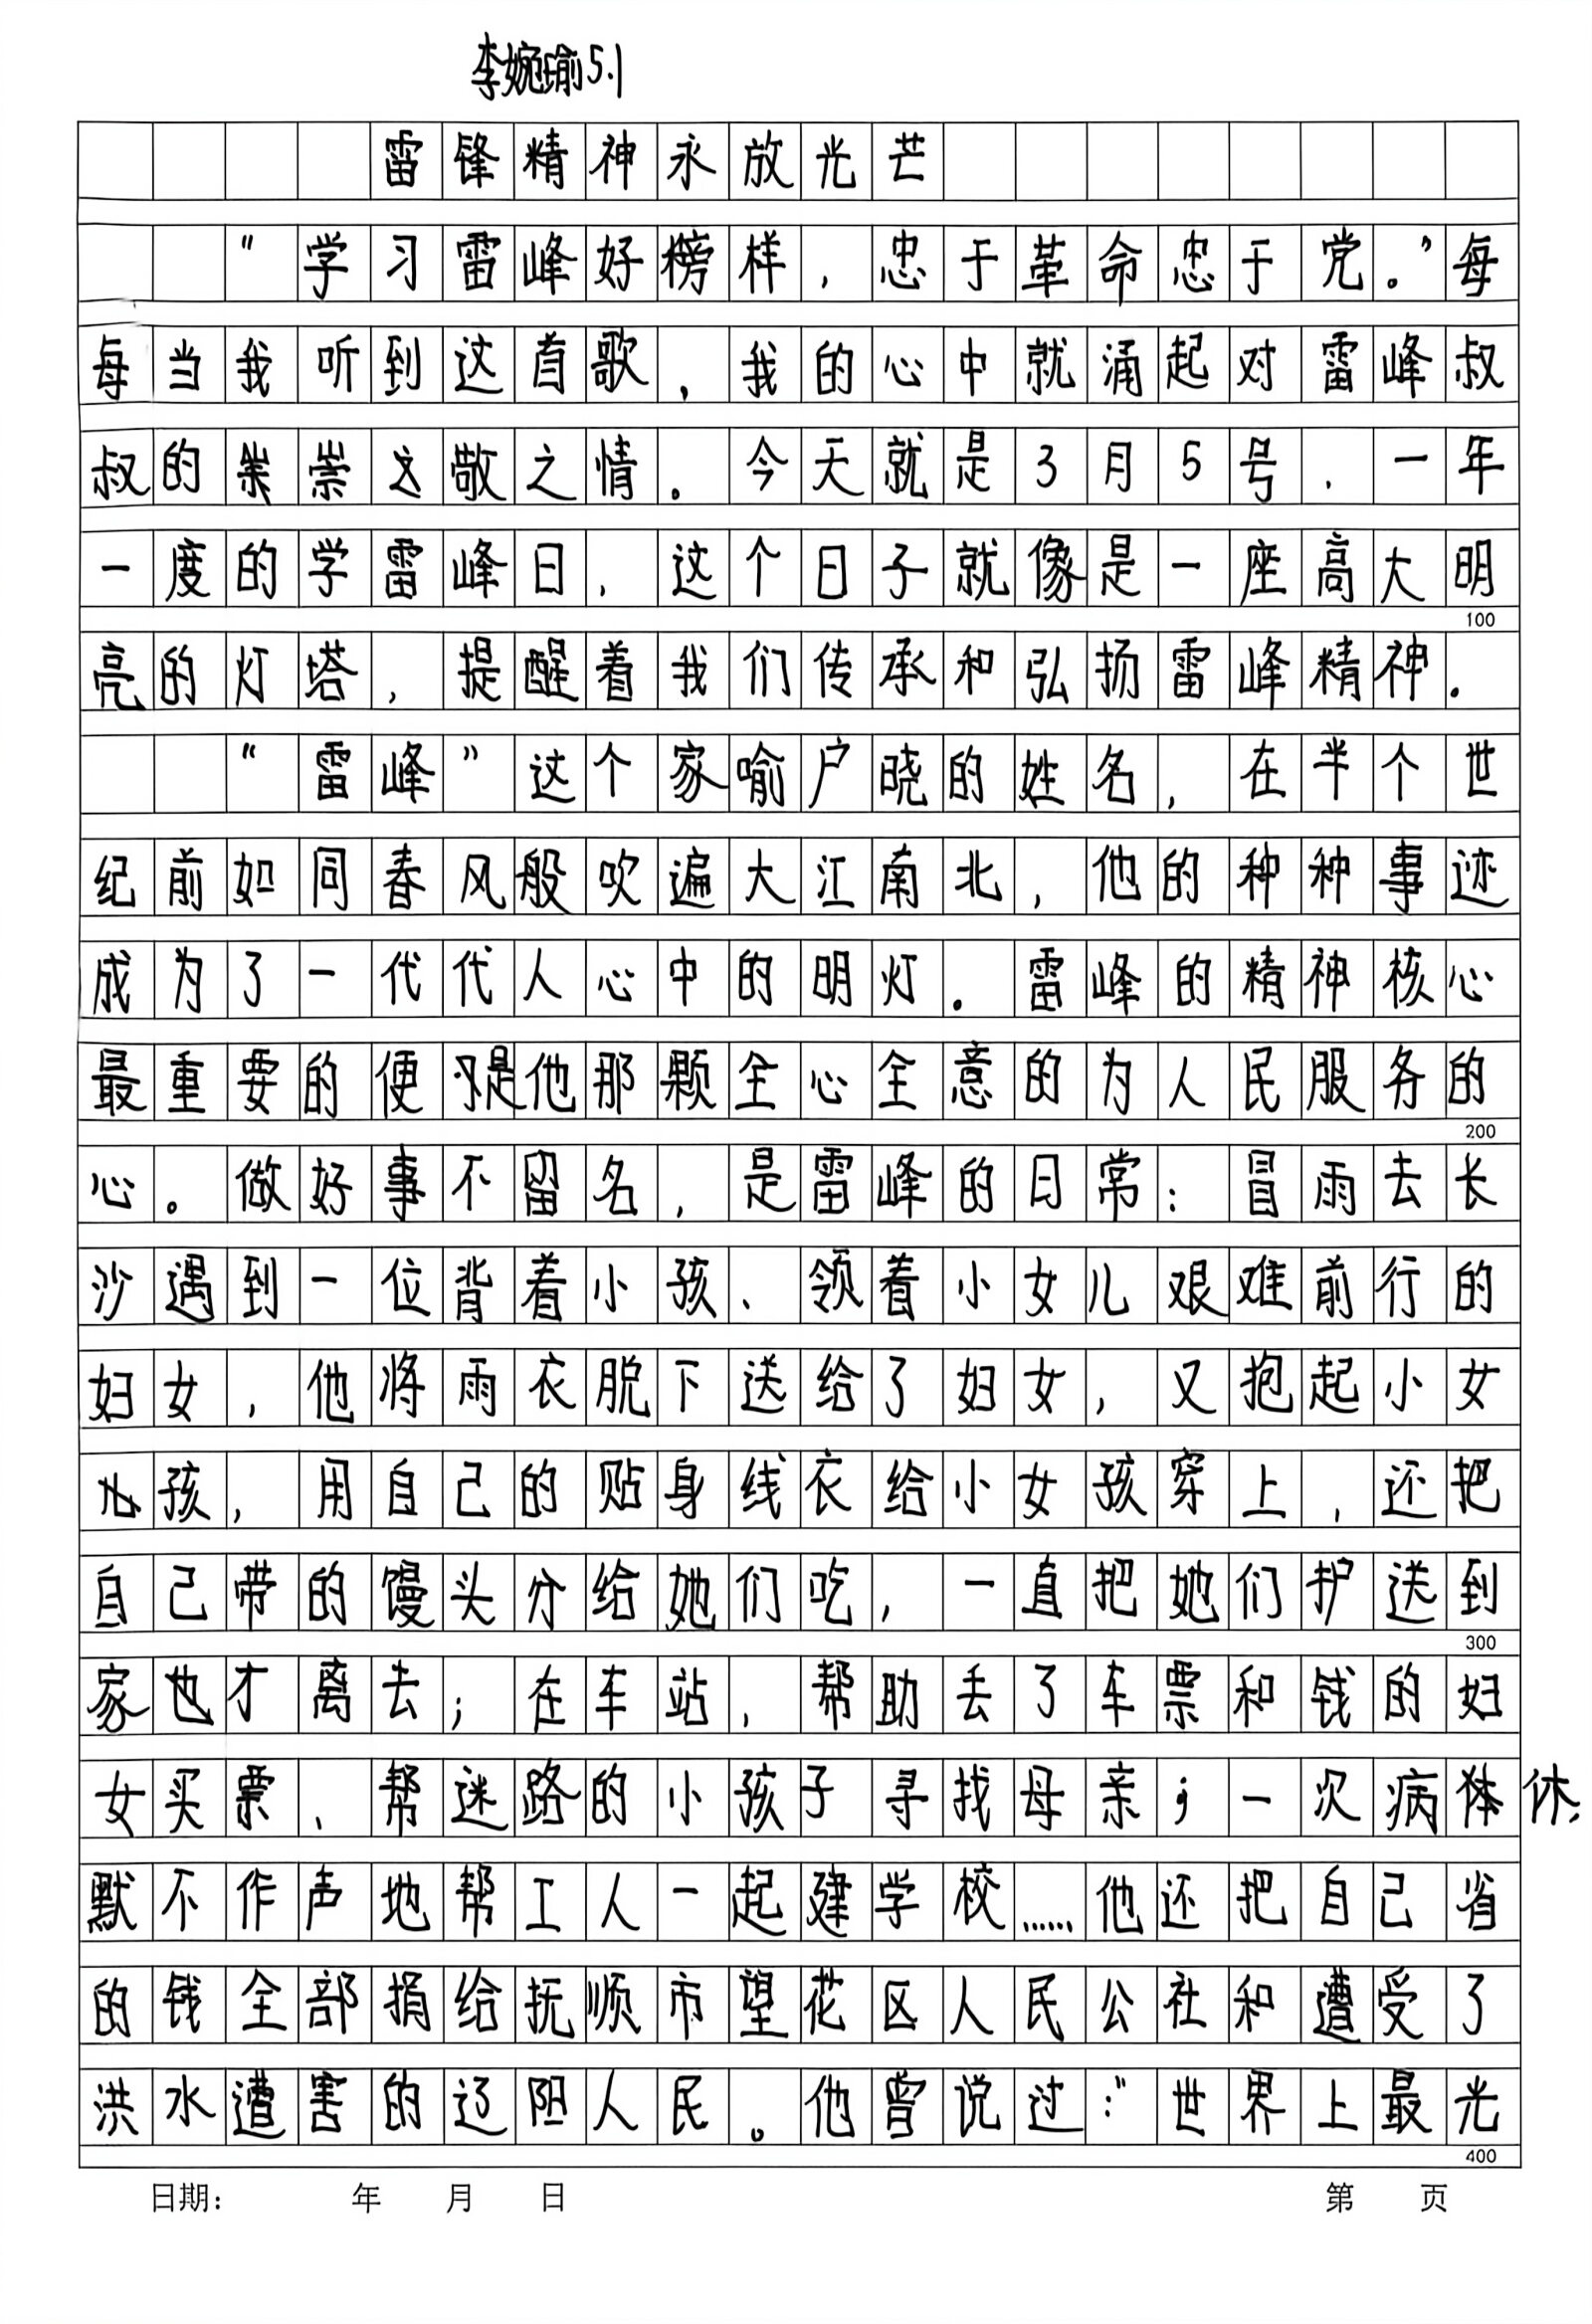 李婉瑜5.1
雷锋精神永放光芒
“学习雷峰好榜样,忠于革命忠于党。”每
每当我听到这首歌,我的心中就涌起对雷峰叔
叔的崇敬之情。今天就是3月5号,一年
一度的学雷峰日,这个日子就像是一座高大明
100
亮的灯塔,提醒着我们传承和弘扬雷峰精神.
“雷峰”这个家喻户晓的姓名,在半个世
纪前如同春风般吹遍大江南北,他的种种事迹
成为了一代代人心中的明灯.雷峰的精神核心
最重要的便是他那颗全心全意的为人民服务的
200
心。做好事不留名,是雷峰的日常:冒雨去长
沙遇到一位背着小孩、领着小女儿艰难前行的
妇女,他将雨衣脱下送给了妇女,又抱起小女
孩,用自己的贴身线衣给小女孩穿上,还把
自己带的馒头分给她们吃,一直把她们护送到
300
家才离去;在车站,帮助丢了车票和钱的妇
女买票、帮迷路的小孩子寻找母亲;一次病休,
默不作声地帮工人一起建学校……他还把自己省
的钱全部捐给抚顺市望花区人民公社和遭受了
洪水遭害的辽阳人民。他曾说过:“世界上最光
400
日期: 年 月 日 第 页